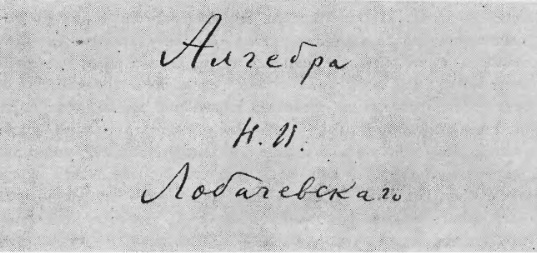 Алгебра
Н. И.
Лобачевскаго